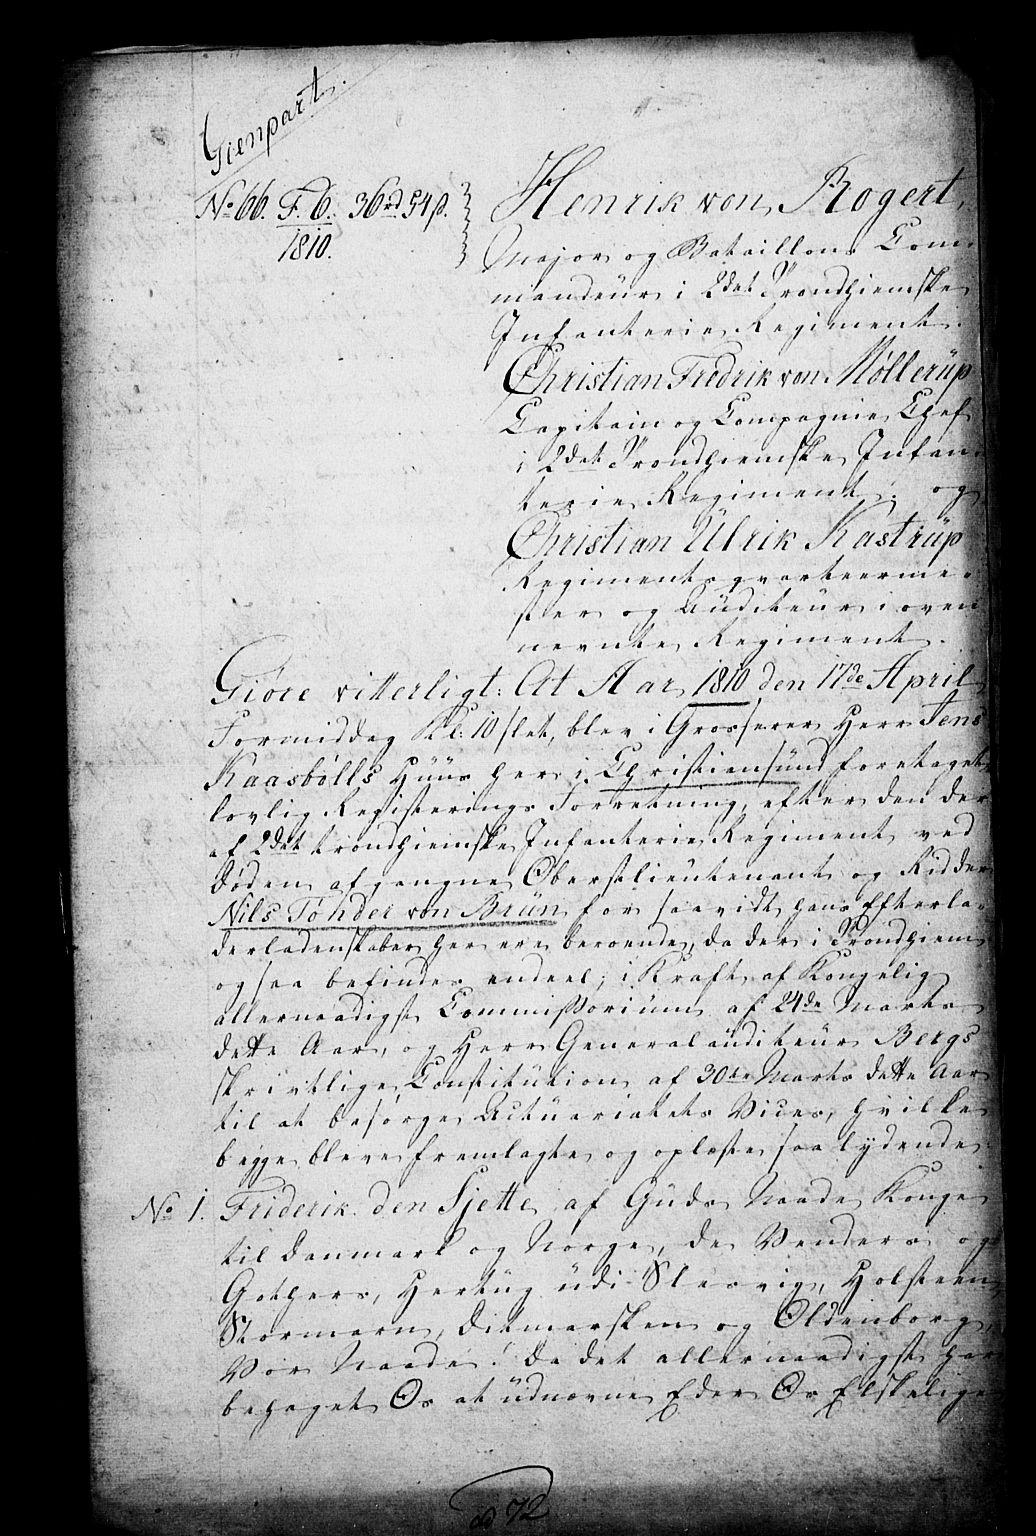 Gienpart.
No 66. F. 6. 36rd 54ß.
1810.
Henrik von Rogert,
Major og Bataillons Com-
mandeur i 2det Trondhiemske
Infanterie Regiment.
Christian Fredrik von Møllerüp
Capitain og Compagnie Chef
i 2det Trondhiemske Infan-
terie Regiment. og
Christian Ulrik Kastrüp
Regimentsqvarteerme-
ster og Auditeur i oven
nevnte Regiment.
Giøre vitterligt: At Aar 1810 den 17de April
Formiddag Kl: 10 slet, blev i Grosserer Herr Jens
Kaasbølls Hüüs her i Christiensünd foretaget
lovlig Registerings Forretning, efter den der
af 2det trondhiemske Infanterie Regiment ved
Døden afgangne Oberstlieutenant og Ridder
Nils Tønder von Brün for saavidt hans Efterla-
derladenskaber her ere beroende, da der i Trondhiem
ogsaa befindes endeel; i Kraft af Kongelig
allernaadigst Commissorium af 24de Marts
dette Aar, og Herr Generalauditeur Bergs
skrivtlige Constitution af 30te Marts dette Aar
til at besørge Actuariatets Vices, hvilke
begge bleve fremlagte og oplæste saa lydende
No 1. Friderik den Sjette af Guds Naade Konge
til Danmark og Norge, de Venders og
Gothers, Hertüg üdi Slesvig, Holsteen,
Stormarn, Ditmarsken og Oldenborg,
Vor Naade! Da det allernaadigst har
behaget Os at üdnævne Eder Os Elskelige
72